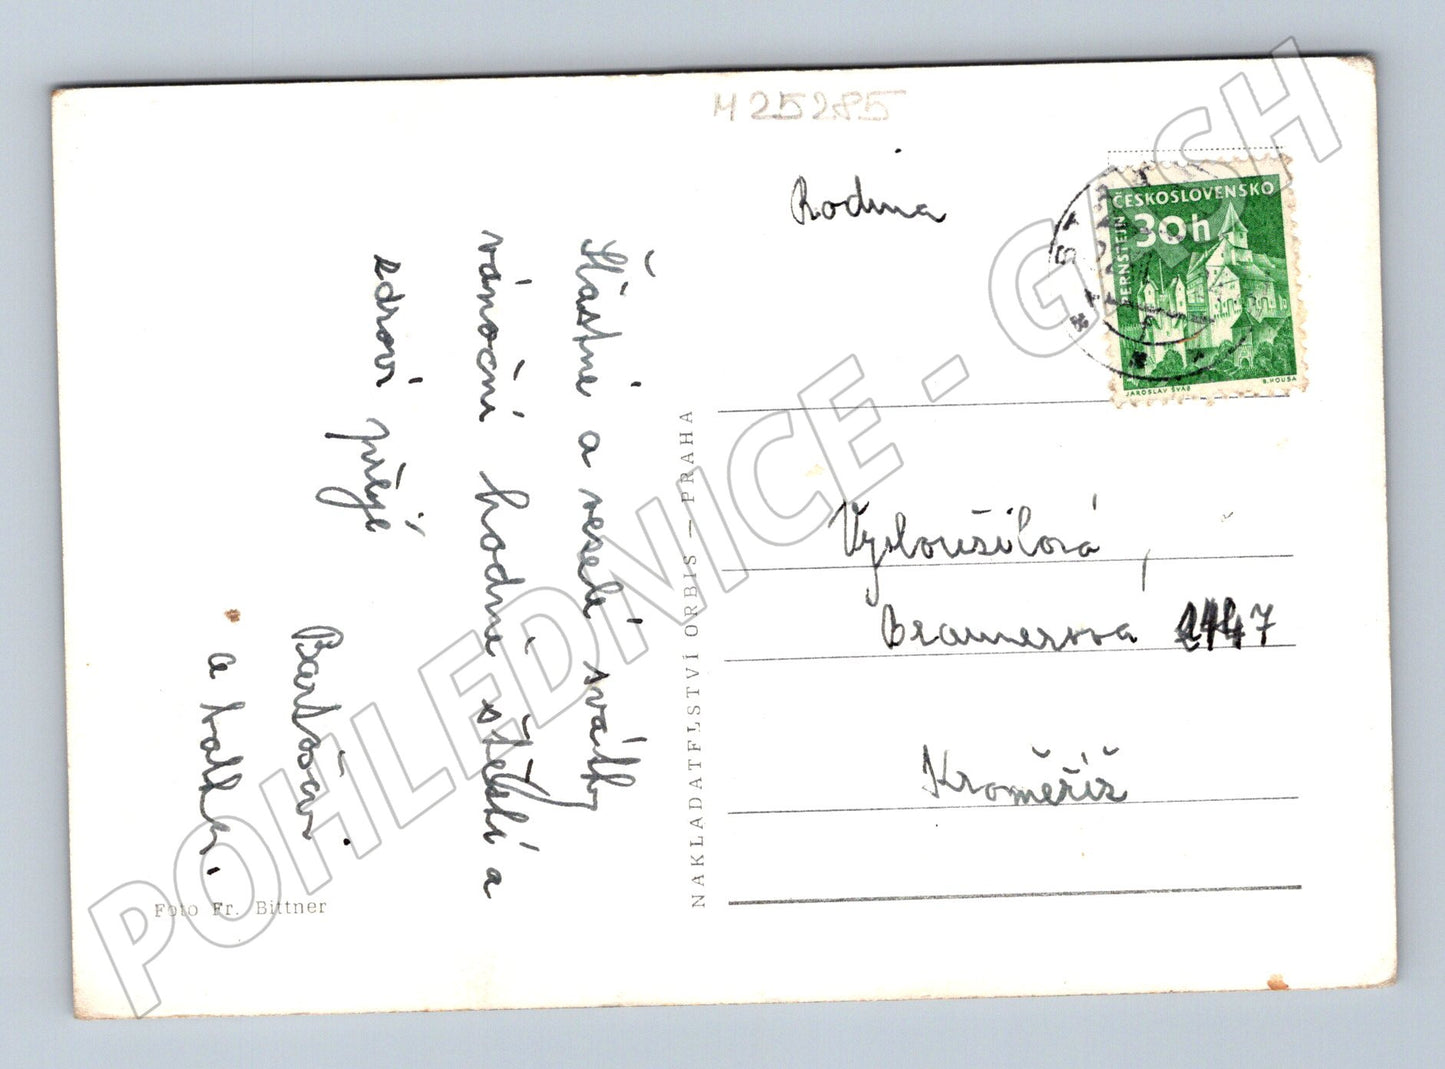 M 25285
Šťastné a veselé svátky
vánoční hodně štěstí a
zdraví přeje
Bartošovi
a
Foto Fr. Bittner
NAKLADATELSTVÍ ORBIS — PRAHA
Rodina
Vysloužilová
Braunerova 2447
Kroměříž
ČESKOSLOVENSKO
30h
PERNŠTEJN
JAROSLAV ŠVÁB
B. HOUSA
POHLEDNICE - GASH